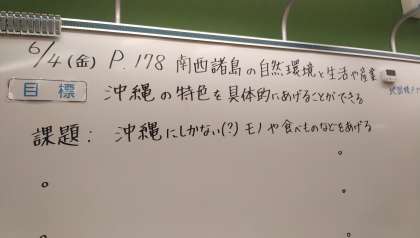 6/4(金) P.178 南西諸島の自然環境と生活や産業
目標 沖縄の特色を具体的にあげることができる
課題: 沖縄にしかない(?)モノや食べものなどをあげる